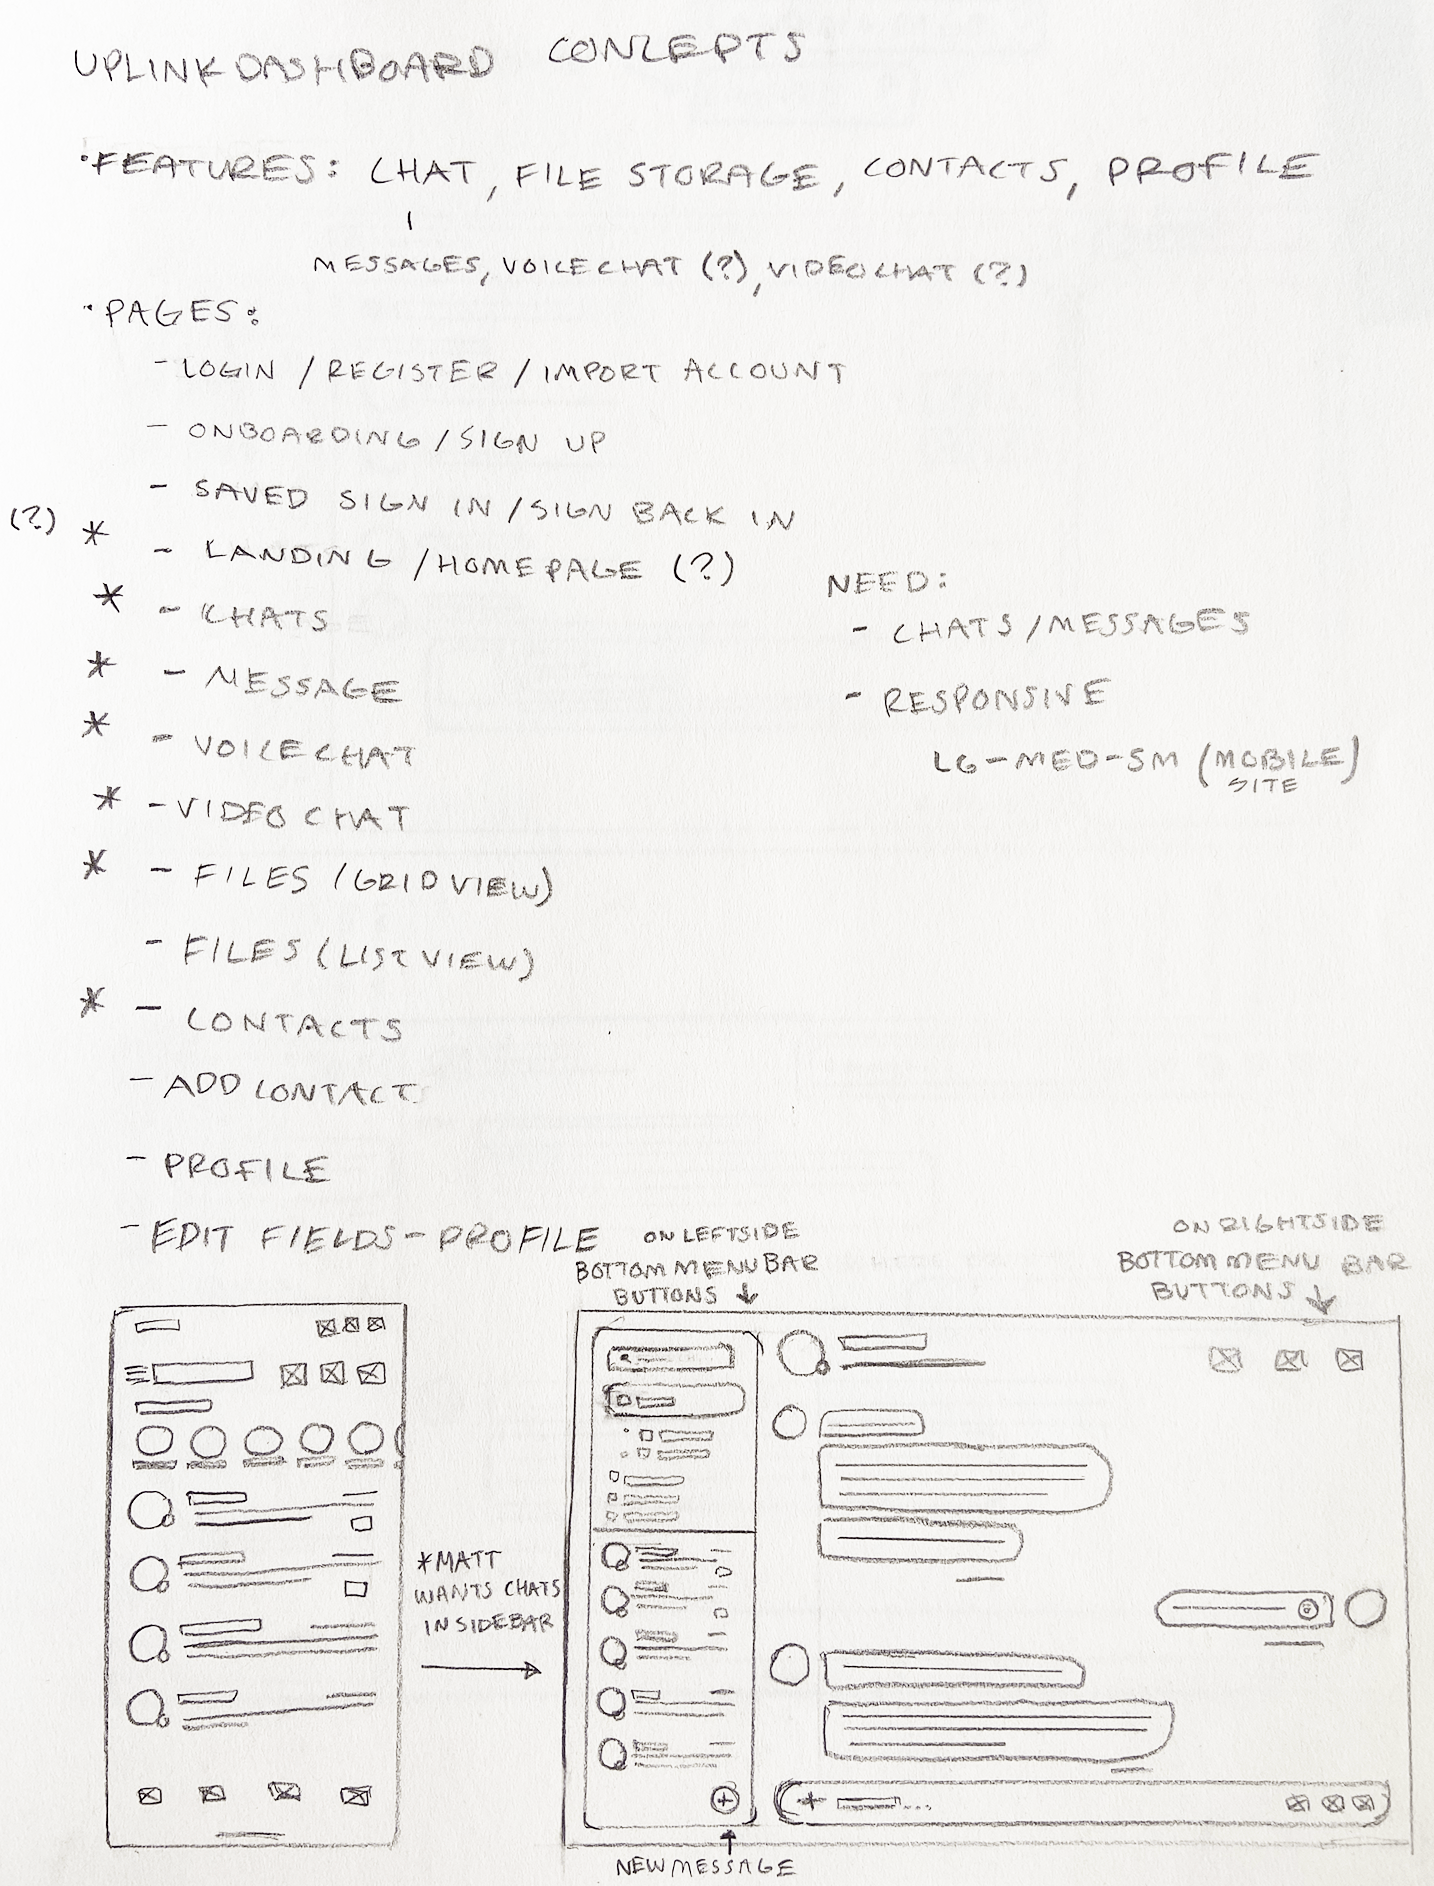 UPLINK DASHBOARD CONCEPTS
• FEATURES: CHAT, FILE STORAGE, CONTACTS, PROFILE
MESSAGES, VOICE CHAT (?), VIDEO CHAT (?)
• PAGES:
- LOGIN / REGISTER / IMPORT ACCOUNT
- ONBOARDING / SIGN UP
- SAVED SIGN IN / SIGN BACK IN
(?) * - LANDING / HOMEPAGE (?)
* - CHATS
* - MESSAGE
* - VOICE CHAT
* - VIDEO CHAT
* - FILES (GRID VIEW)
- FILES (LIST VIEW)
* - CONTACTS
- ADD CONTACTS
- PROFILE
- EDIT FIELDS - PROFILE
NEED:
- CHATS / MESSAGES
- RESPONSIVE
LG - MED - SM (MOBILE)
SITE
ON LEFTSIDE
BOTTOM MENU BAR
BUTTONS ↓
ON RIGHTSIDE
BOTTOM MENU BAR
BUTTONS ↓
*MATT
WANTS CHATS
IN SIDEBAR
NEW MESSAGE